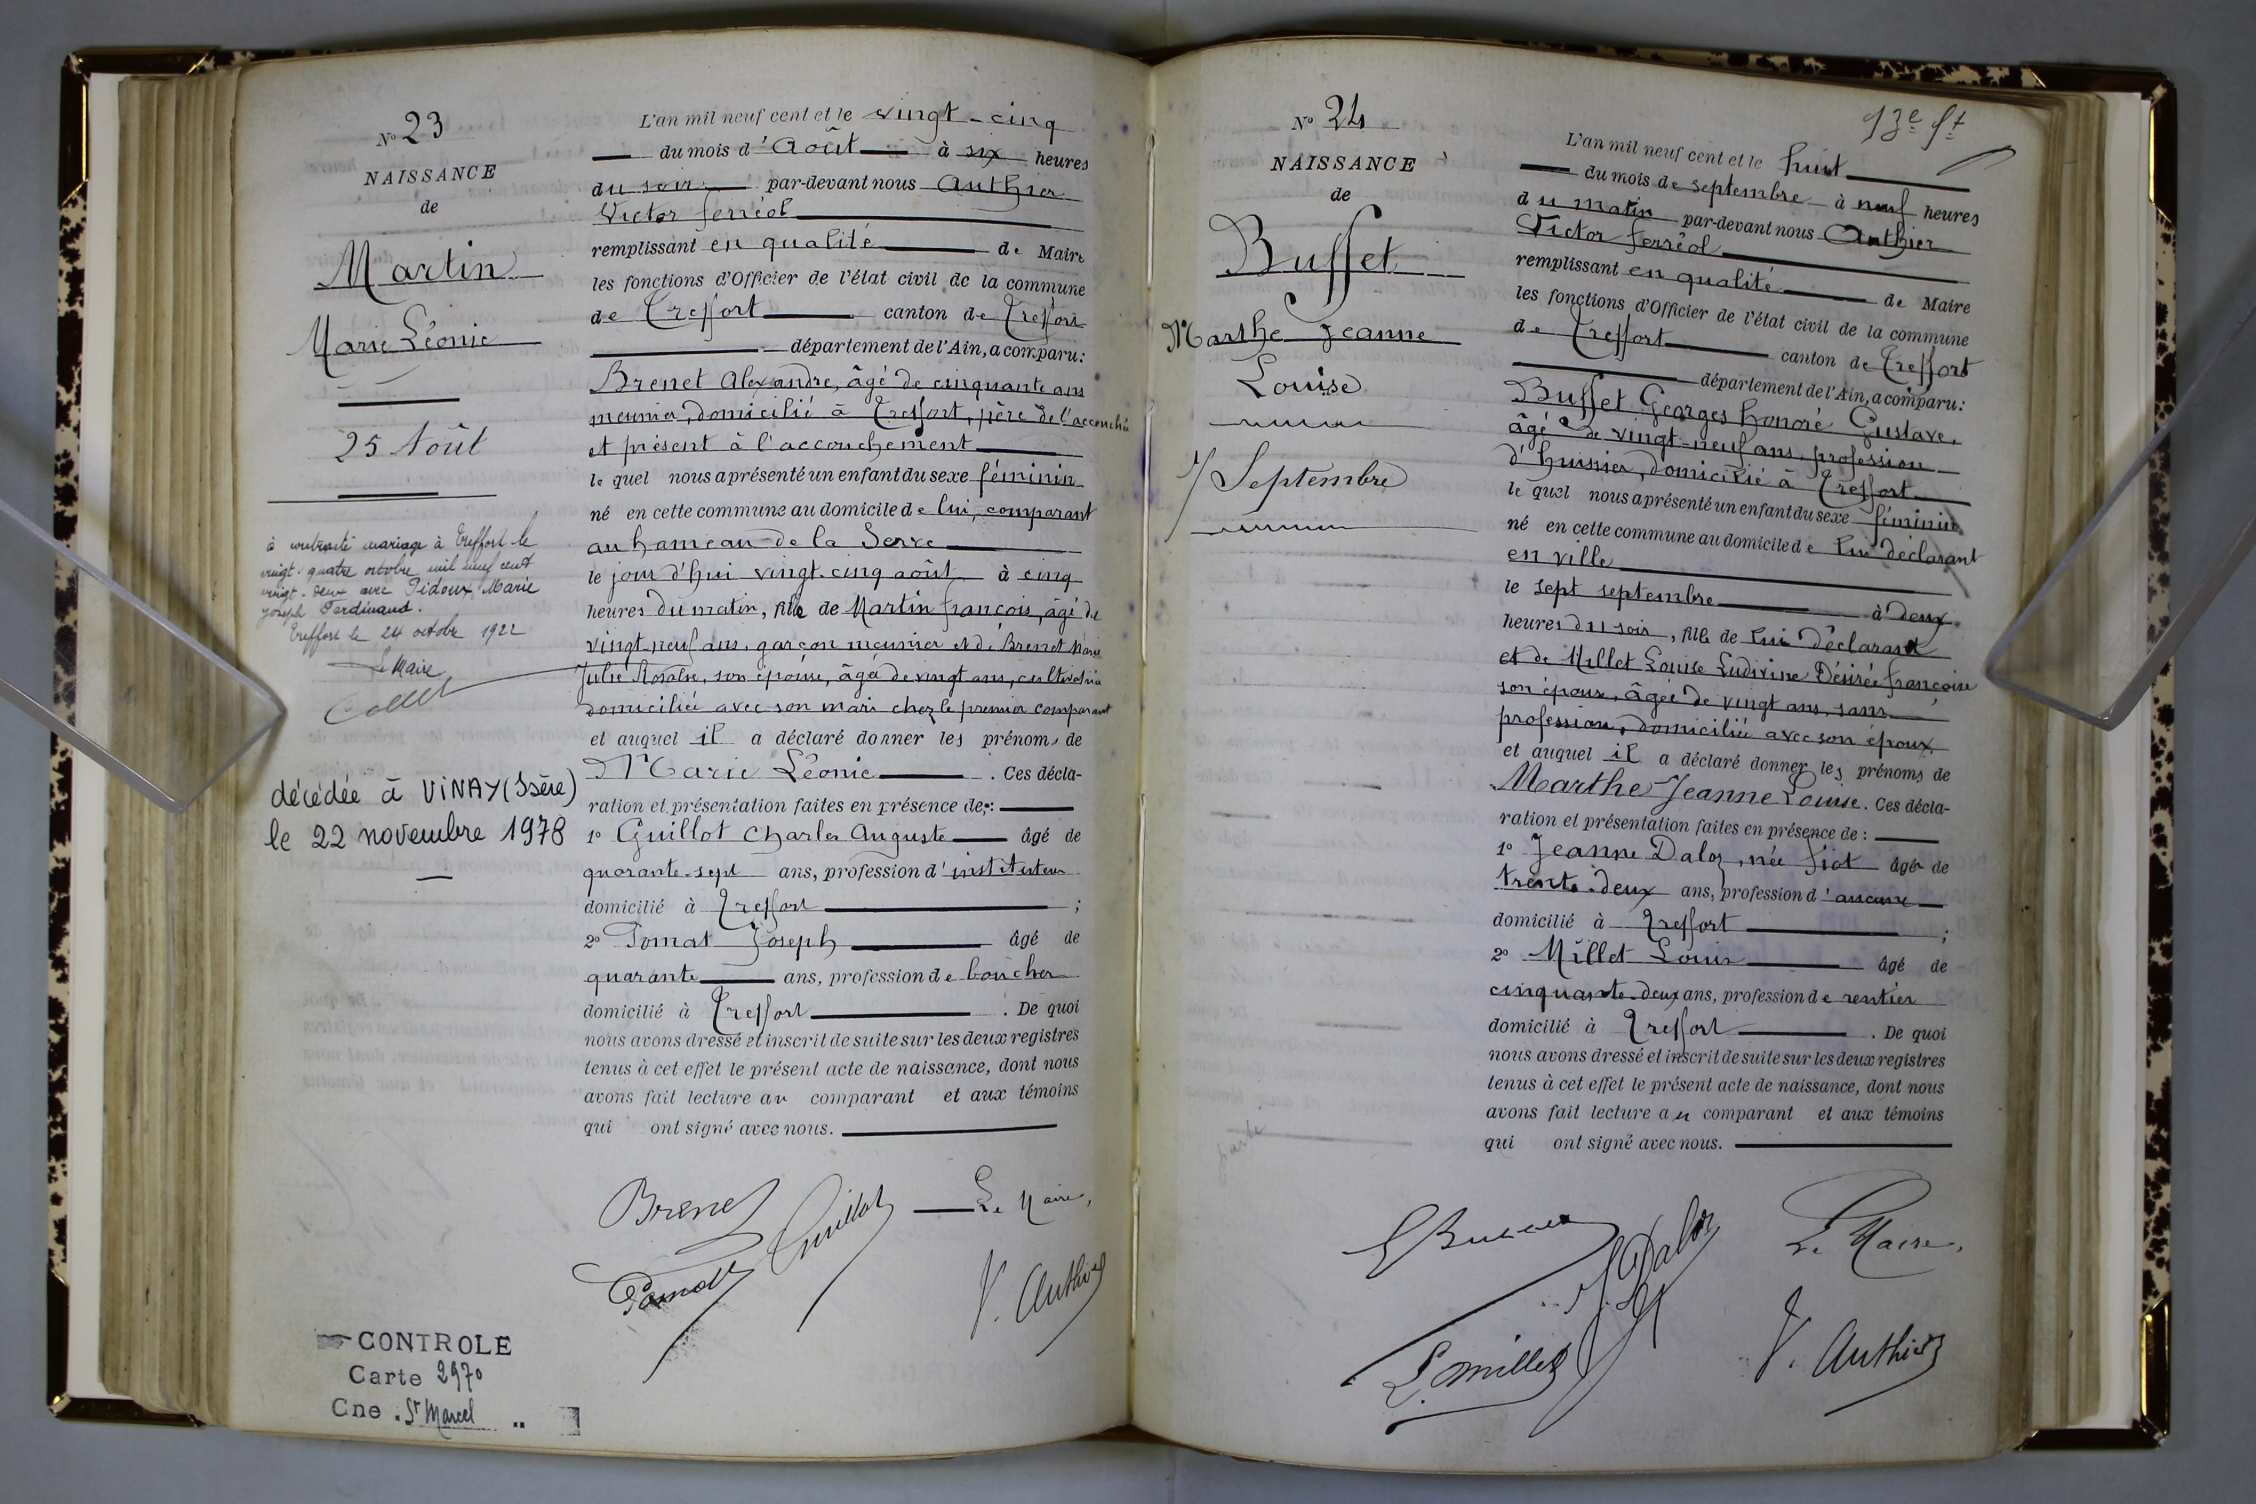 N° 23
NAISSANCE
de
Martin
Marie Léonie
25 Août
a contracté mariage à Treffort le
vingt-quatre octobre mil neuf cent
vingt-deux avec Pidoux Marie
Joseph Ferdinand.
Treffort le 24 octobre 1922
Le Maire
Collet
décédée à VINAY (Isère)
le 22 novembre 1978
CONTROLE
Carte 2970
Cne St Marcel
L'an mil neuf cent et le vingt-cinq
du mois d'Août à six heures
du soir par-devant nous Authier
Victor ferréol
remplissant en qualité de Maire
les fonctions d'Officier de l'état civil de la commune
de Treffort canton de Treffort
département de l'Ain, a comparu:
Brenet Alexandre, âgé de cinquante ans
meunier, domicilié à Treffort, père de l'accouchée
et présent à l'accouchement
lequel nous a présenté un enfant du sexe féminin
né en cette commune au domicile de lui, comparant
au hameau de la Serre
le jour d'hui vingt-cinq août à cinq
heures du matin, fille de Martin françois, âgé de
vingt-neuf ans, garçon meunier et de Brenet Marie
Julie Rosalie, son épouse, âgée de vingt ans, cultivatrice
domiciliée avec son mari chez le premier comparant
et auquel il a déclaré donner les prénoms de
Marie Léonie. Ces décla-
ration et présentation faites en présence de:
1° Guillot Charles Auguste âgé de
quarante-sept ans, profession d'instituteur
domicilié à Treffort ;
2° Pomat Joseph âgé de
quarante ans, profession de boucher
domicilié à Treffort. De quoi
nous avons dressé et inscrit de suite sur les deux registres
tenus à cet effet le présent acte de naissance, dont nous
avons fait lecture au comparant et aux témoins
qui ont signé avec nous.
Brenet Guillot Le Maire,
Pomat V. Authier
13e ft
N° 24
NAISSANCE
de
Buffet
Marthe Jeanne
Louise
7 Septembre
L'an mil neuf cent et le huit
du mois de septembre à neuf heures
du matin par-devant nous Authier
Victor ferréol
remplissant en qualité de Maire
les fonctions d'Officier de l'état civil de la commune
de Treffort canton de Treffort
département de l'Ain, a comparu:
Buffet Georges honoré Gustave,
âgé de vingt-neuf ans, profession
d'huissier, domicilié à Treffort
lequel nous a présenté un enfant du sexe féminin
né en cette commune au domicile de lui déclarant
en ville
le sept septembre à deux
heures du soir, fille de lui déclarant
et de Millet Louise Ludivine Désirée françoise
son épouse, âgée de vingt ans, sans
profession, domiciliée avec son époux
et auquel il a déclaré donner les prénoms de
Marthe Jeanne Louise. Ces décla-
ration et présentation faites en présence de:
1° Jeanne Daloz, née fiot âgée de
trente-deux ans, profession d'aucune
domicilié à Treffort ;
2° Millet Louis âgé de
cinquante-deux ans, profession de rentier
domicilié à Treffort. De quoi
nous avons dressé et inscrit de suite sur les deux registres
tenus à cet effet le présent acte de naissance, dont nous
avons fait lecture au comparant et aux témoins
qui ont signé avec nous.
J Daloz Le Maire,
L. Millet V. Authier